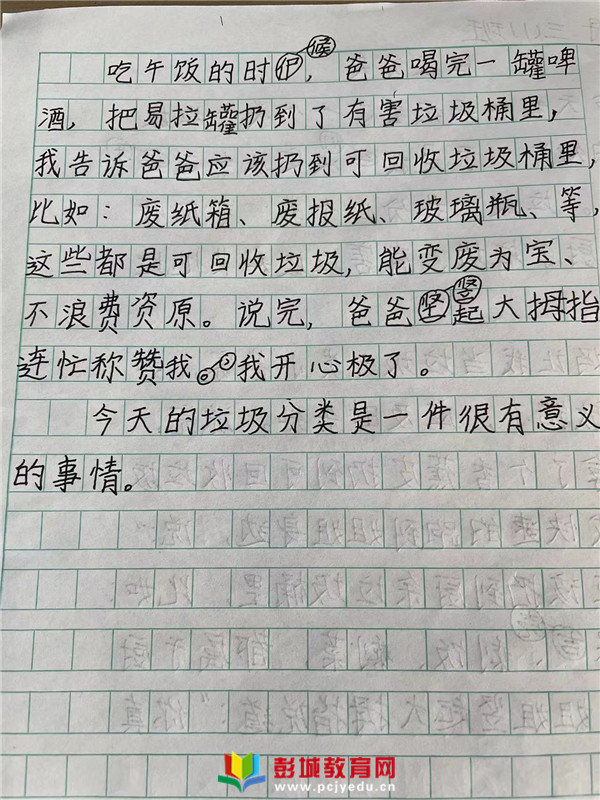 吃午饭的时候，爸爸喝完一罐啤
酒，把易拉罐扔到了有害垃圾桶里，
我告诉爸爸应该扔到可回收垃圾桶里，
比如：废纸箱、废报纸、玻璃瓶、等，
这些都是可回收垃圾，能变废为宝、
不浪费资原。说完，爸爸竖起大拇指
连忙称赞我，我开心极了。
今天的垃圾分类是一件很有意义
的事情。
彭城教育网
www.pcjyedu.cn